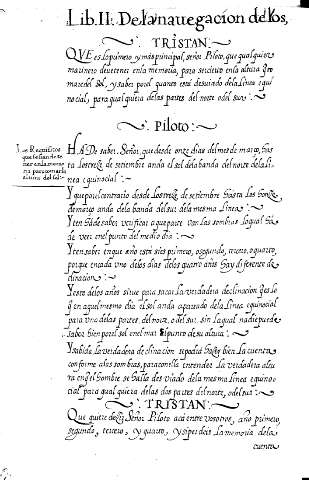 Lib. II. De la navegacion de los,
TRISTAN:
QVE es lo primero y mas principal, señor Piloto, que qualquier
marinero deve tener en la memoria, para servicio en la altura q̃ to
mare del sol, y saber por el quanto está desviado de la Linea equi
nocial, para qualquiera de las partes del norte o del sur:
Piloto:
Los Requisitos
que se han de te
ner en la memo
ria para tomar la
altura del sol.
HA De saber, Señor, que desde onze dias del mes de março, has
ta los treze de setiembre anda el sol de la banda del norte de la li
nea equinocial:
Y que por el contrario desde los treze de setiembre hasta los honze
de março anda de la banda del sur de la mesma Linea:
Y ten Ha de saber verificar a que parte van las sombras la qual ha
de ver en el punto del medio dia:
Y ten saber en que año está si es primero, o segundo, tercero, o quarto,
porque en cada vno de los dias de los quatro años hay diferente de
clinacion:
Y esto de los años sirve para sacar la verdadera declinacion q̃ es lo
q̃ en aquel mesmo dia el sol anda apartado de la Linea equinocial
para vna de las partes, del norte, o del sur, sin la qual nadie puede
saber bien por el sol en el mar el punto de su altura:
Y sabida la verdadera declinacion se podrá hazer bien la cuenta
conforme a las sombras, para con ella entender la verdadera altu
ra en q̃ el hombre se halla desviado de la mesma linea equino
cial para qualquiera de las dos partes del norte, o del sur:
TRISTAN:
Que quiere dezir Señor Piloto acá entre vosotros, año primero,
segundo, tercero, y quarto, y si perdeis la memoria de la
cuenta